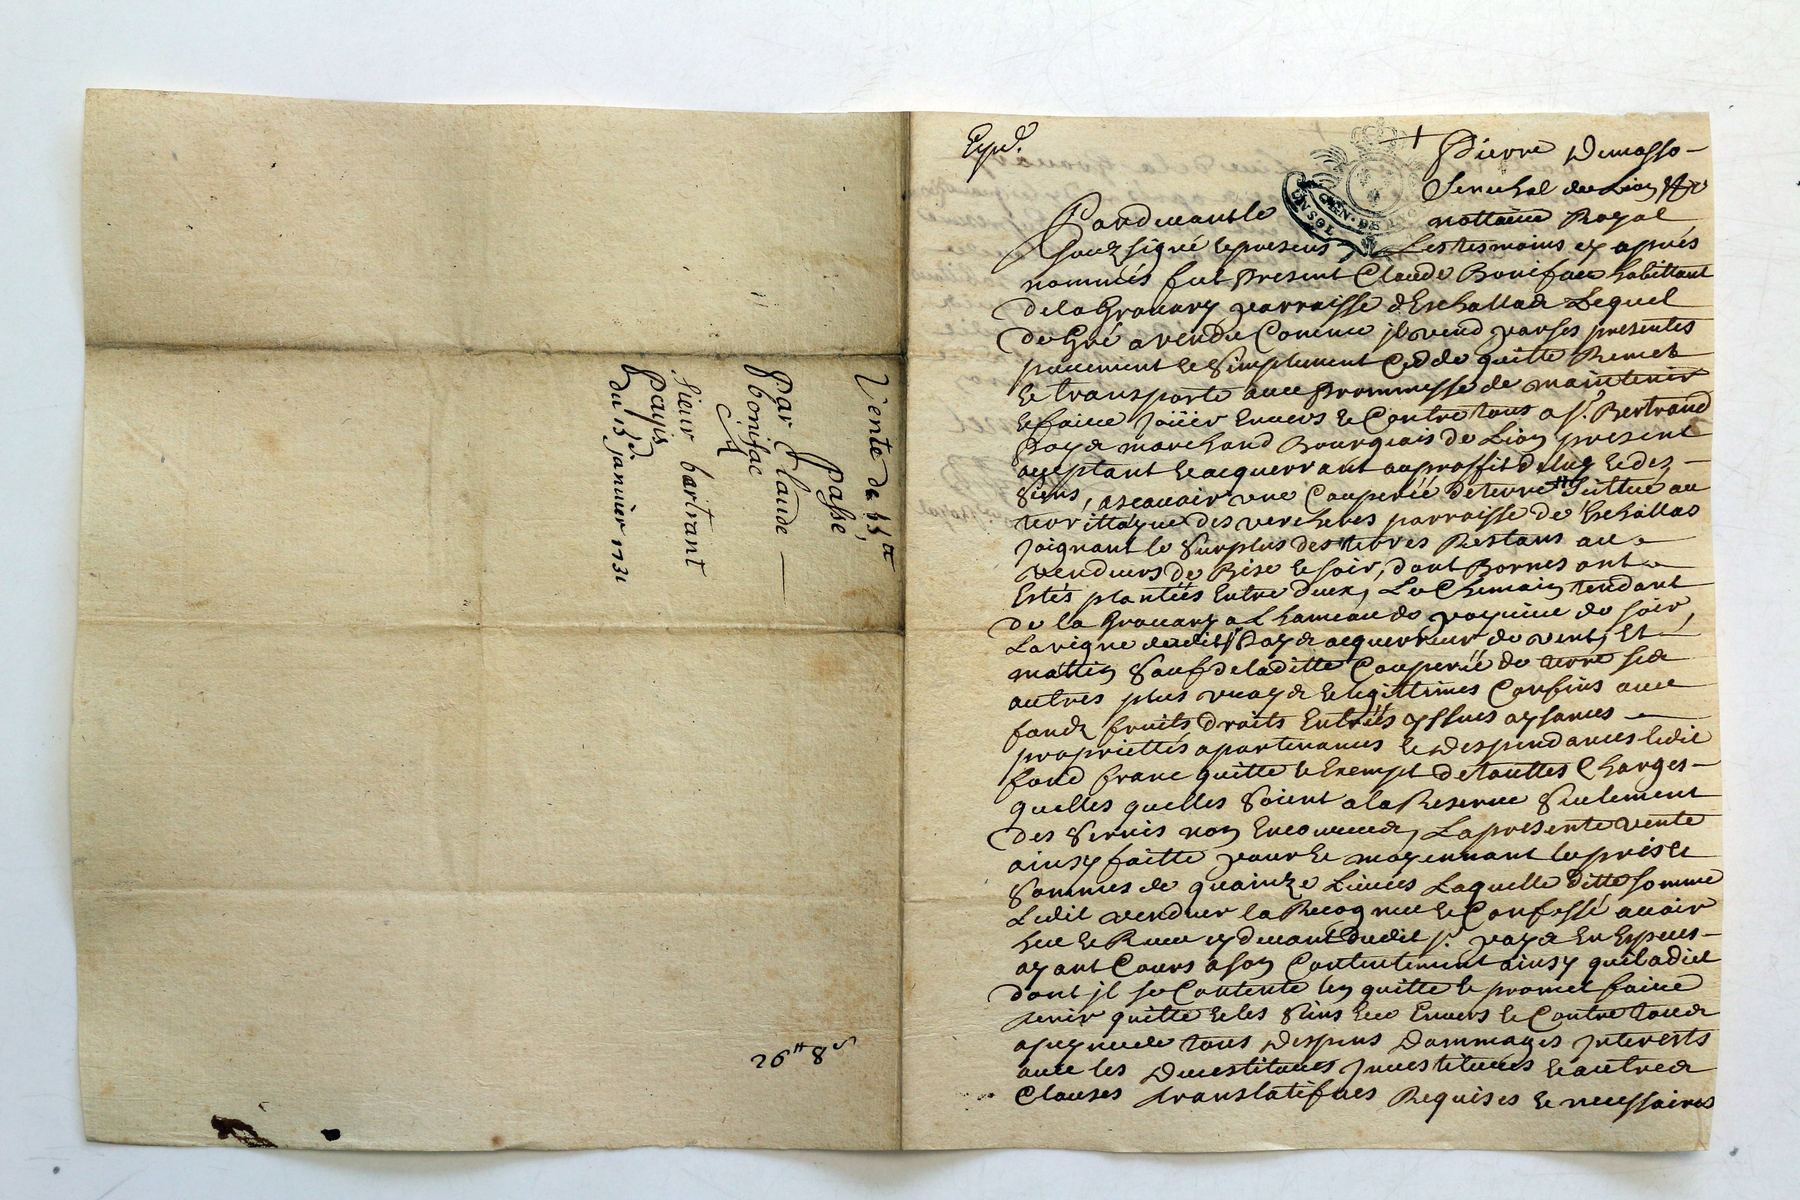 Vente de 15 tt
Passé
Par Claude —
bonifac
A
Sieur bartrant
Payis
du 13e janvier 1731
26 tt 8 s
Expd.
Pierre Demasso
Senechal de Lion &c
Pardevant le nottaire Royal
souzsigné et presens Les tesmoins cy aprués
nommés fut present Claude Bonifac habittant
de la Grouary parroisse d'Eschallas Lequel
de Gré a vendu Comme jl vend par ses presentes
purement et Simplement Cedde quitte Remet
et transporte avec prommesse de maintenir
et faire joüir Envers et Contre tous a sr. Bertrand
Paya marchand Bourgeois de Lion present
acceptant et acquerrant au proffit de luy et des
Siens, ascavoir une Couperiée de terre Scittué au
territtoyre des vercheres parroisse de Eschallas
Joignant le Surplus des terres Restans au
vendeurs de Bise et soir, dont Bornes ont
Estés plantées Entre deux, Le Chemain tendant
de la Grouary a L'hameau de de soir
La vigne dudit Sr Paya acquerreur de vent, Et
mattin Sauf de laditte Couperiée de terre ses
autres plus vrays et legittimes Confins avec
fondz fruits droits Entrées yssues aysances
propriettés apartenances et Despendances ledit
fond franc quitte et Exempt de touttes Charges
quelles quelles Soient a la Reserve Seulement
des Servis non Encourreus, La presente vente
ainsy faitte pour et moyennant le pris et
Sommes de quainze Livres Laquelle ditte somme
Ledit vendeur la Recognu et Confessé avoir
heu et Receu cy devant dudit sr. paya En Especes
ayant Cours a son Contentement ainsy quil a dit
dont jl se Contente len quitte et promet faire
tenir quitte et les Siens Envers et Contre tous
a peyne de tous Despens Dommages Jnterests
avec les Devestitures Jnvestitures et autres
Clauses translatifves Requises et necessaires